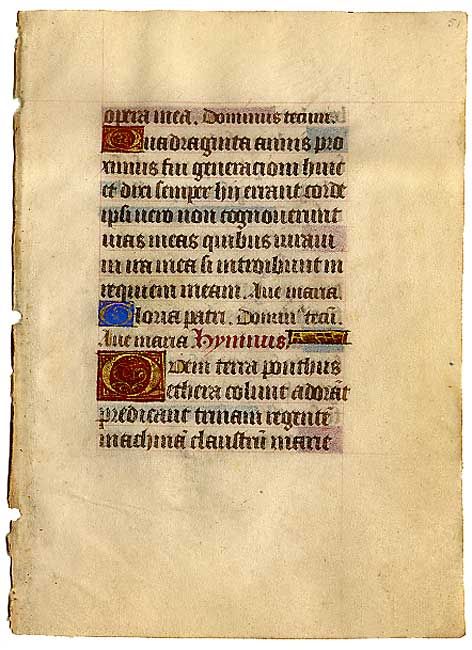 opera mea. Dominus tecum.
Quadraginta annis pro
ximus fui generacioni huic
et dixi semper hii errant corde
ipsi vero non cognoverunt
vias meas quibus iuravi
in ira mea si introibunt in
requiem meam. Ave maria
Gloria patri. Dominꝰ tecū.
Ave maria Hymnus
Quem terra ponthus
ethera colunt adorāt
predicant trinam regentē
machinā claustrū marie